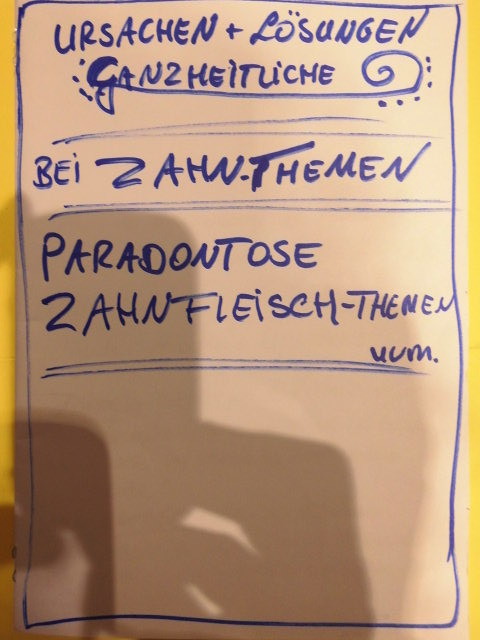 URSACHEN + LÖSUNGEN
GANZHEITLICHE
BEI ZAHN-THEMEN
PARADONTOSE
ZAHNFLEISCH-THEMEN
uvm.